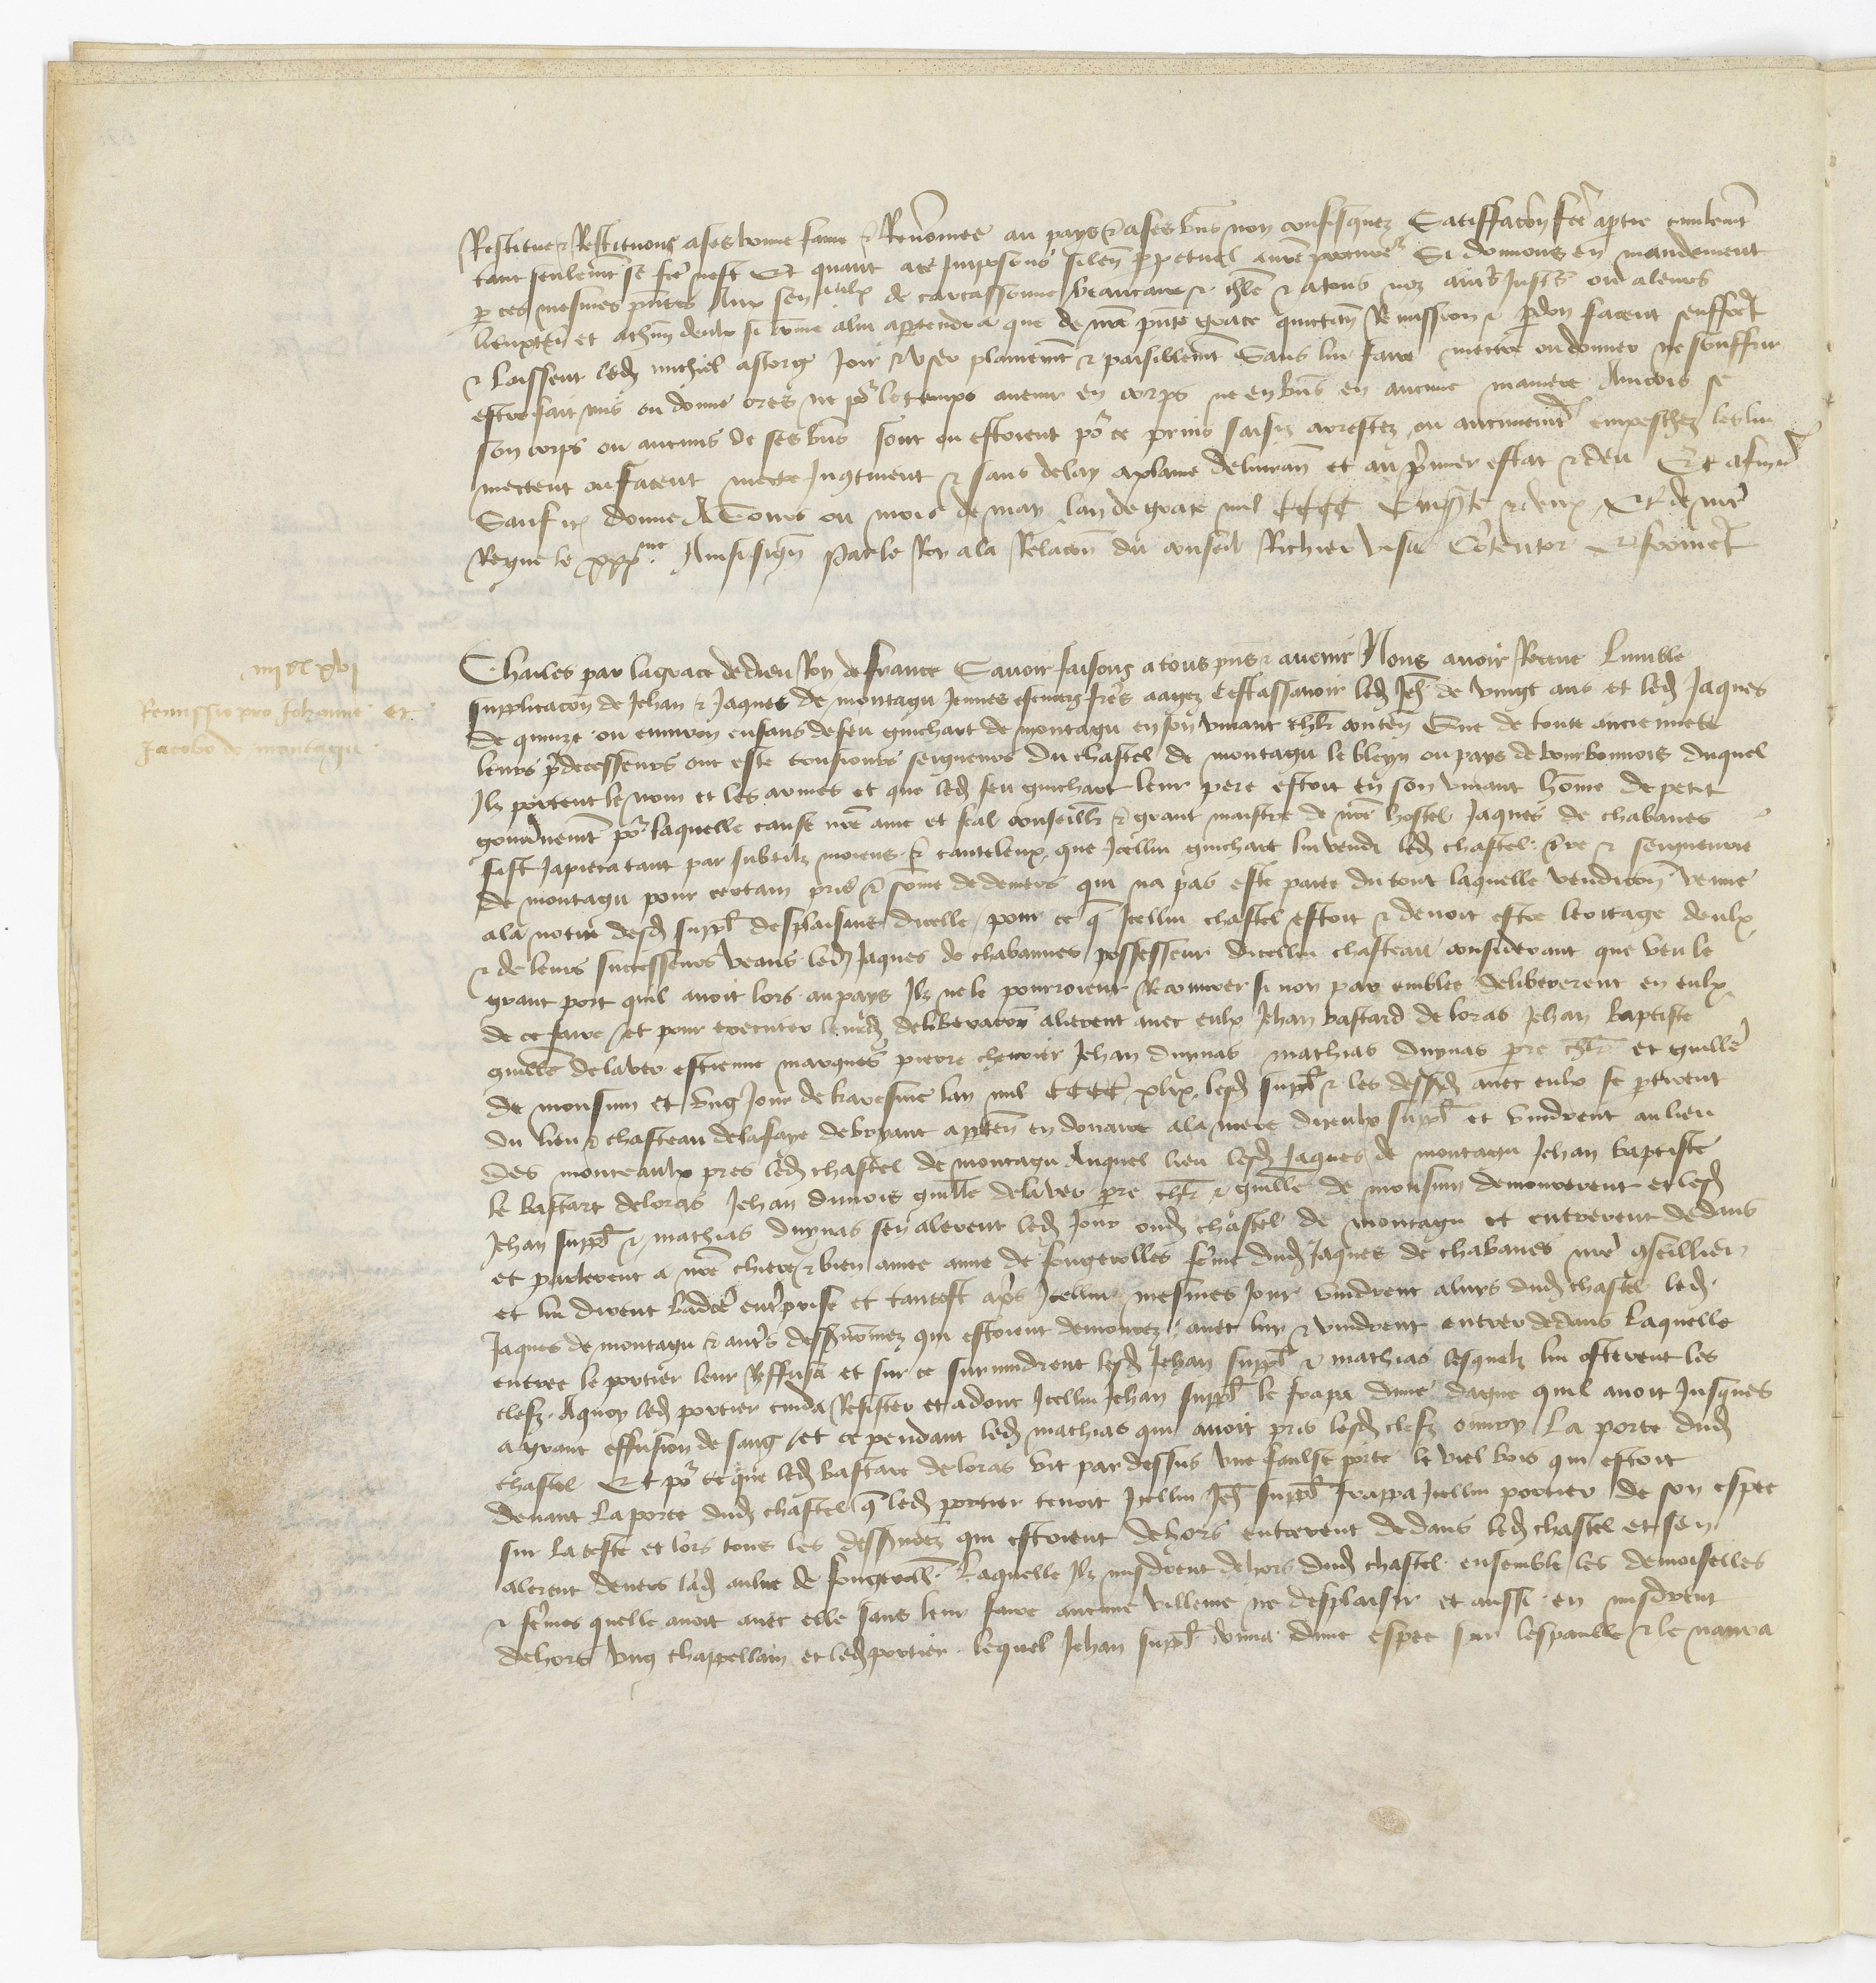 Restitue & Restituons a ses bonne fame & Renommee au pays & a ses biens non confisquez Satiffacion fcte a ptie civilemt
tant seulemt se fce nest Et quant a ce Imposons silen ppetuel a nre procur Si donnons en mandement
p ces mesmes pntes Aux senalx de carcassonne beaucaire & & a tous noz autrs Justi ou a leurs
lieuxten et a chun deulx si come a lui apptendra que de nre pnte grace quictan Remission & pdon facent seuffret
& laissent led michiel astorg Joir & user plainemt & paisiblemt Sans lui faire mettre ou donner ne souffrir
estre fait mis ou donne ores ne por le temps avenir en corps ne en biens en aucune maniere Aincois se
son corps ou aucuns de ses biens sont ou estoient por ce prins saisiz arrestez ou aucunemt empeschez les lui
mettent ou facent mettre Incontinent & sans delay a plaine delivran et au premier estat & deu Et afin
Sauf donne A Tours ou mois de may lan de grace mil CCCC Cinqte & deux Et de nre
Regne le xxxme Ainsi signe Par le Roy a la Relacon du conseil Richier visa Contentor
iiii xx xvi
Remissio pro Johanne et
Jacobo de montagu
Charles par la grace de dieu Roy de france Savoir faisons a tous pns & avenir Nous avoir Receue Lumble
supplicacon de Jehan & Jaques de montagu Jeunes escuiers freres aagez Cestassavoir led Jeh de vingt ans et led Jaques
de quinze ou environ enfans de feu guichart de montagu en son vivant chlr conten Que de toute anciennete
leurs predecesseurs ont este tousiours seigneurs du chastel de montagu le bleyn ou pays de bourbonnois duquel
Ilz portent le nom et les armes et que led feu guichart leur pere estoit en son vivant home de petit
gouvernemt por laquelle cause nre ame et feal conseillr & grant maistre de nre hostel Jaques de chabanes
fist Japieca tant par subtilz moiens & cauteleux que Icellui guichart lui vendi led chastel tre & seigneurie
de montagu pour certain pris & some de deniers qui na pas este paiee du tout laquelle vendicon venue
a la notice desd suppl desplaisans dicelle pour ce q Icellui chastel estoit & devoit estre leritage deulx
& de leurs successeurs veans led Jaques de chabannes possesseur dicellui chasteau considerant que veu le
grant port quil avoit lors au pays Ilz ne le pourroient Recouvrer si non par emblee delibererent en eulx
de ce faire et pour executer leurd deliberacon alierent avec eulx Jehan bastard de loras Jehan baptiste
guille delaver estienne marques pierre chevrier Jehan duynas mathias duynas pre et guille
de monsum et ung Jour de karesme lan mil CCCC xlix lesd suppl & les dessusd avec eulx se ptirent
du lieu & chasteau delafaye de apten en douaire a la mere diceulx suppl et vindrent au lieu
des monceaulx pres led chastel de montagu Auquel lieu lesd Jaques de montagu Jehan baptiste
le bastart deloras Jehan guille delaver pre & guille de monsum demourerent et lesd
Jehan suppl & mathias duynas sen alerent led Jour oud chastel de montagu et entrerent dedans
et parlerent a nre chiere & bien amee anne de fougerolles feme dud Jaques de chabanes nre conseillier
et lui dirent lad entreprise et tantost apres Icellui mesmes Jour vindrent a luys dud chastel led
Jaques de montagu & autrs dessnommez qui estoient demourez avec luy & vindrent entrer dedans Laquelle
entree le portier leur Reffusa et sur ce survindrent lesd Jehan suppl & mathias lesquelz lui osterent les
clefz Aquoy led portier cuida Resister et adonc Icellui Jehan suppl le frapa dune dague quil avoit Jusques
a grant effusion de sang et ce pendant led mathias qui avoit pris lesd clefz ouvry La porte dud
chastel Et por ce que led bastart de loras vit par dessus une faulse porte le viel bois qui estoit
devant La porte dud chastel q led portier tenoit Icellui Jeh suppl frappa Icellui portier de son espee
sur la teste et lors tous les dessnomez qui estoient dehors entrerent dedans led chastel et sen
alerent devers lad anne de fougeroll Laquelle Ilz misdrent dehors dud chastel ensemble les demoiselles
& femes quelle avoit avec elle sans leur faire aucune villenie ne desplaisir et aussi en misdrent
dehors ung chappellain et led portier lequel Jehan suppl dune espee sur lespaulle & le navra